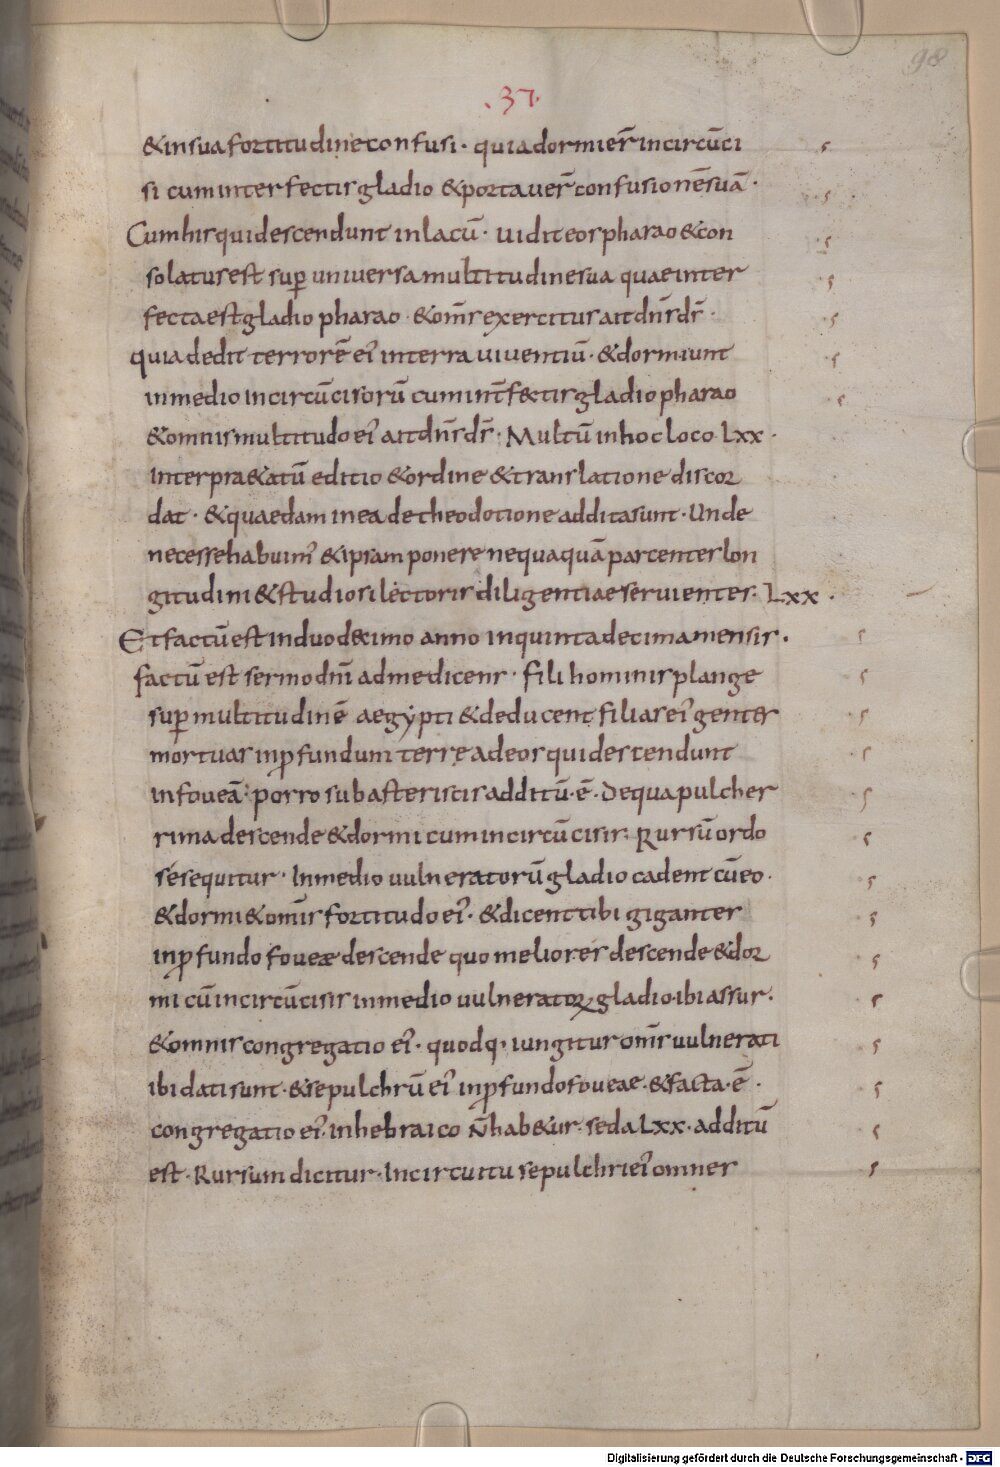 98
.37.
& in sua fortitudine confusi · quia dormier̄ incircūci
si cum interfectis gladio & portauer̄ confusionē suā ·
Cum his qui descendunt in lacū · uidit eos pharao & con
solatus est sup uniuersa multitudine sua quae inter
fecta est gladio pharao · & om̄s exercitus ait dn̄s ds̄ ·
quia dedit terrorē ei' in terra uiuentiū · & dormiunt
in medio incircūcisorū cum int̄f&tis gladio pharao
& omnis multitudo ei' ait dn̄s ds̄ · Multū in hoc loco Lxx ·
interpr&atū editio & ordine & translatione discor
dat · & quaedam in ea de theodotione addita sunt · Unde
necesse habuim' & ipsam ponere nequaquā parcentes lon
gitudini & studiosi lectoris diligentiae seruientes · Lxx ·
Et factū est in duodecimo anno in quintadecima mensis ·
factū est sermo dn̄i ad me dicens · fili hominis plange
sup multitudinē aegypti & deducent filias ei' gentes
mortuas in pfundum terrę ad eos qui descendunt
in foueā · porro sub asteriscis additū · ē · De qua pulcher
rima descende & dormi cum incircūcisis · Rursū ordo
se sequitur · In medio uulneratorū gladio cadent cū eo ·
& dormi & om̄is fortitudo ei' · & dicent tibi gigantes
in pfundo foueæ descende quo melior es descende & dor
mi cū incircūcisis in medio uulneratorꝝ gladio · ibi assur ·
& omnis congregatio ei' · quodq · iungitur om̄s uulnerati
ibi dati sunt · & sepulchrū ei' in pfundo foueae · & facta · ē ·
congregatio ei' · in hebraico n̄ hab&ur · sed a Lxx · additū
est · Rursum dicitur · In circuitu sepulchri ei' omnes
Digitalisierung gefördert durch die Deutsche Forschungsgemeinschaft - DFG